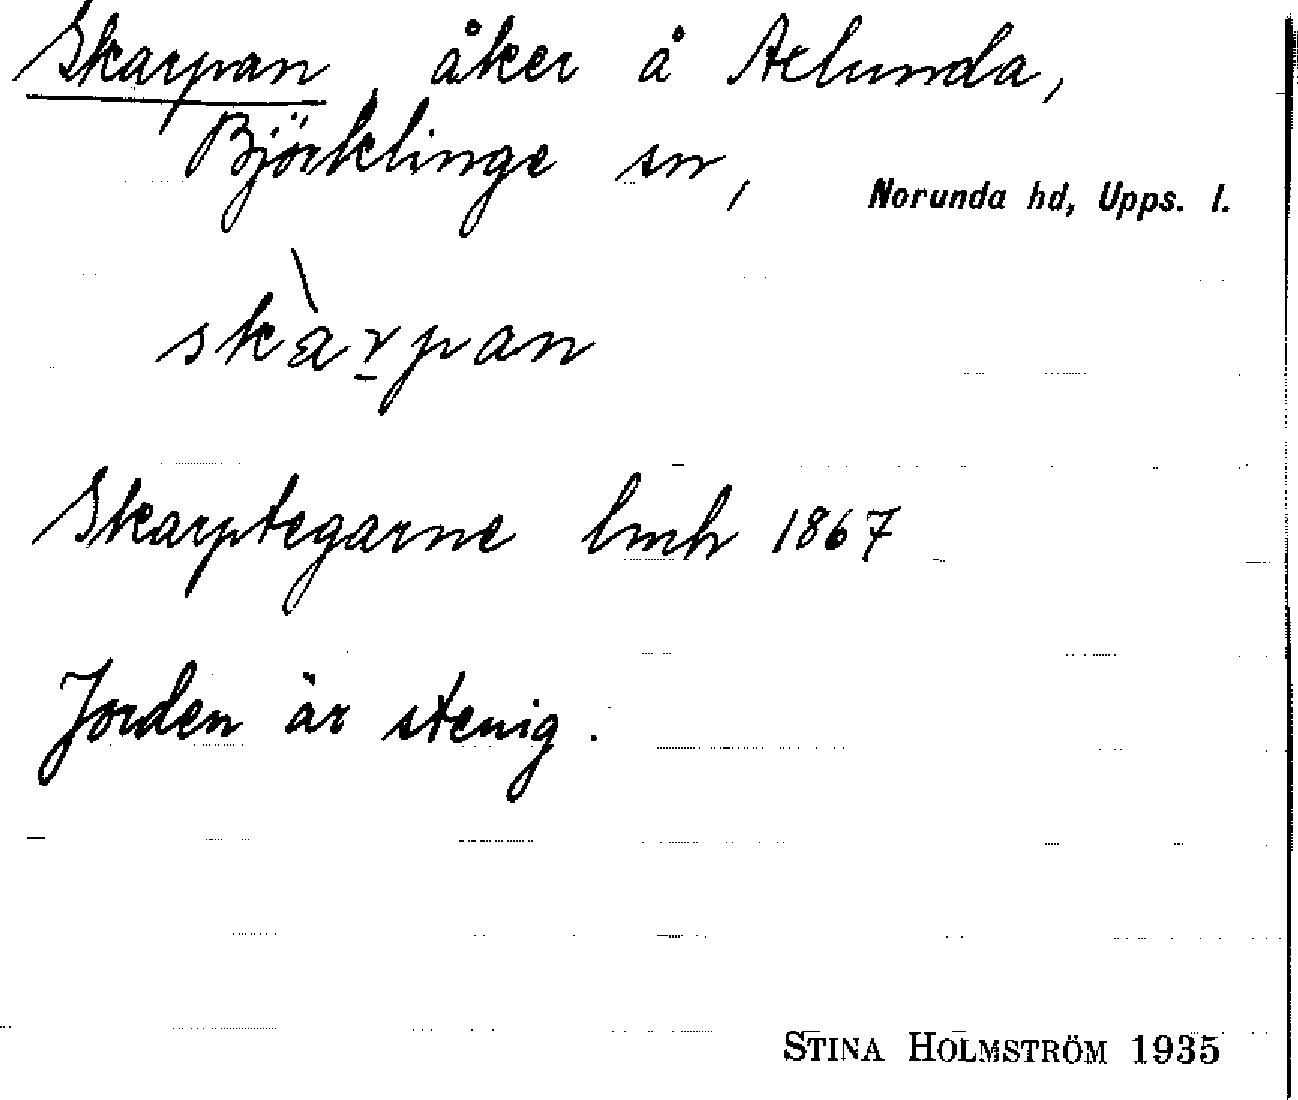 Skarpan, åker å Axlunda,
Björklinge sn, Norunda hd, Upps. l.
skàr̲pan
Skarptegarne lmh 1867
Jorden är stenig.
STINA HOLMSTRÖM 1935